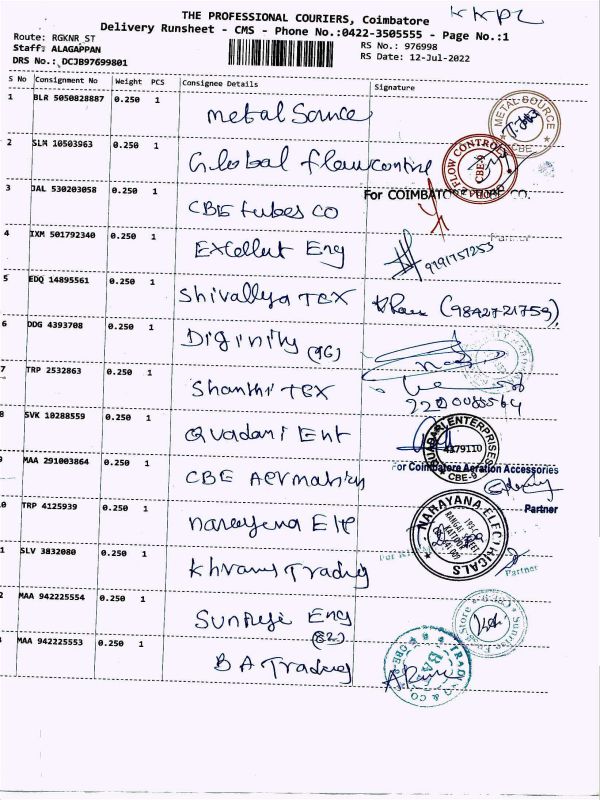 KKPZ
THE PROFESSIONAL COURIERS, Coimbatore
Delivery Runsheet - CMS - Phone No.:0422-3505555 - Page No.:1
Route: RGKNR_ST
RS No.: 976998
Staff: ALAGAPPAN
RS Date: 12-Jul-2022
DRS No.: DCJB97699801
S No Consignment No Weight PCS Consignee Details Signature
1 BLR 5050828887 0.250 1 Metal Source
METAL SOURCE CBE
2 SLM 10503963 0.250 1 Global flowcontrol
FLOW CONTROL CBE-9
3 JAL 530203058 0.250 1 CBE tubes CO
For COIMBATORE CO.
Partner
4 IXM 501792340 0.250 1 Excellent Eng
9191757253
5 EDQ 14895561 0.250 1 Shivallya TEX
(9842721759)
6 DDG 4393708 0.250 1 Diginity (96)
7 TRP 2532863 0.250 1 Shanthi TEX
8 SVK 10288559 0.250 1 Quadari Ent
QUADARI ENTERPRISES 4379110 CBE-9
9 MAA 291003864 0.250 1 CBE
For Coimbatore Aeration Accessories
Partner
0 TRP 4125939 0.250 1 Narayana Ele
NARAYANA ELECTRICALS
1 SLV 3832080 0.250 1 Khivans Trading
Partner
2 MAA 942225554 0.250 1 Sunrise Eng
(82)
MAA 942225553 0.250 1 BA Trading
BA TRADING & CO